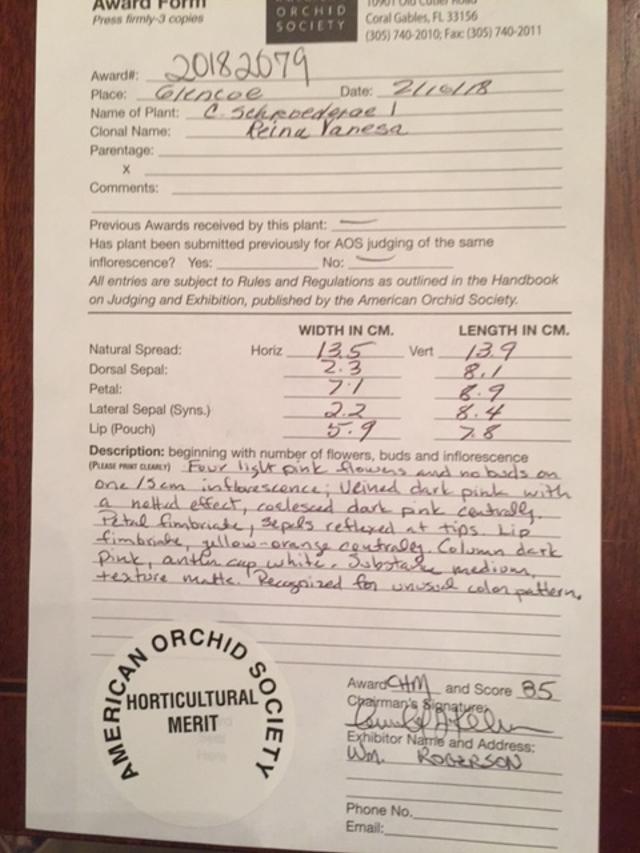 Award Form
Press firmly-3 copies
ORCHID
SOCIETY
10901 Old Cutler Road
Coral Gables, FL 33156
(305) 740-2010; Fax: (305) 740-2011
Award#: 20182079
Place: Glencoe Date: 2/10/18
Name of Plant: C. Schroederae 1
Clonal Name: Reina Vanesa
Parentage:
X
Comments:
Previous Awards received by this plant: —
Has plant been submitted previously for AOS judging of the same
inflorescence? Yes: No: —
All entries are subject to Rules and Regulations as outlined in the Handbook
on Judging and Exhibition, published by the American Orchid Society.
WIDTH IN CM. LENGTH IN CM.
Natural Spread: Horiz 13.5 Vert 13.9
Dorsal Sepal: 2.3 8.1
Petal: 7.1 8.9
Lateral Sepal (Syns.) 2.2 8.4
Lip (Pouch) 5.9 7.8
Description: beginning with number of flowers, buds and inflorescence
(PLEASE PRINT CLEARLY) Four light pink flowers and no buds on
one 15cm inflorescence; veined dark pink with
a netted effect, coalesced dark pink centrally.
Petal fimbriate, sepals reflexed at tips. Lip
fimbriate, yellow-orange centrally. Column dark
pink, anther cap white. Substance medium,
texture matte. Recognized for unusual color pattern.
AMERICAN ORCHID SOCIETY
HORTICULTURAL
MERIT
Award CHM and Score 85
Chairman's Signature:
Exhibitor Name and Address:
Wm. ROBERSON
Phone No.
Email: